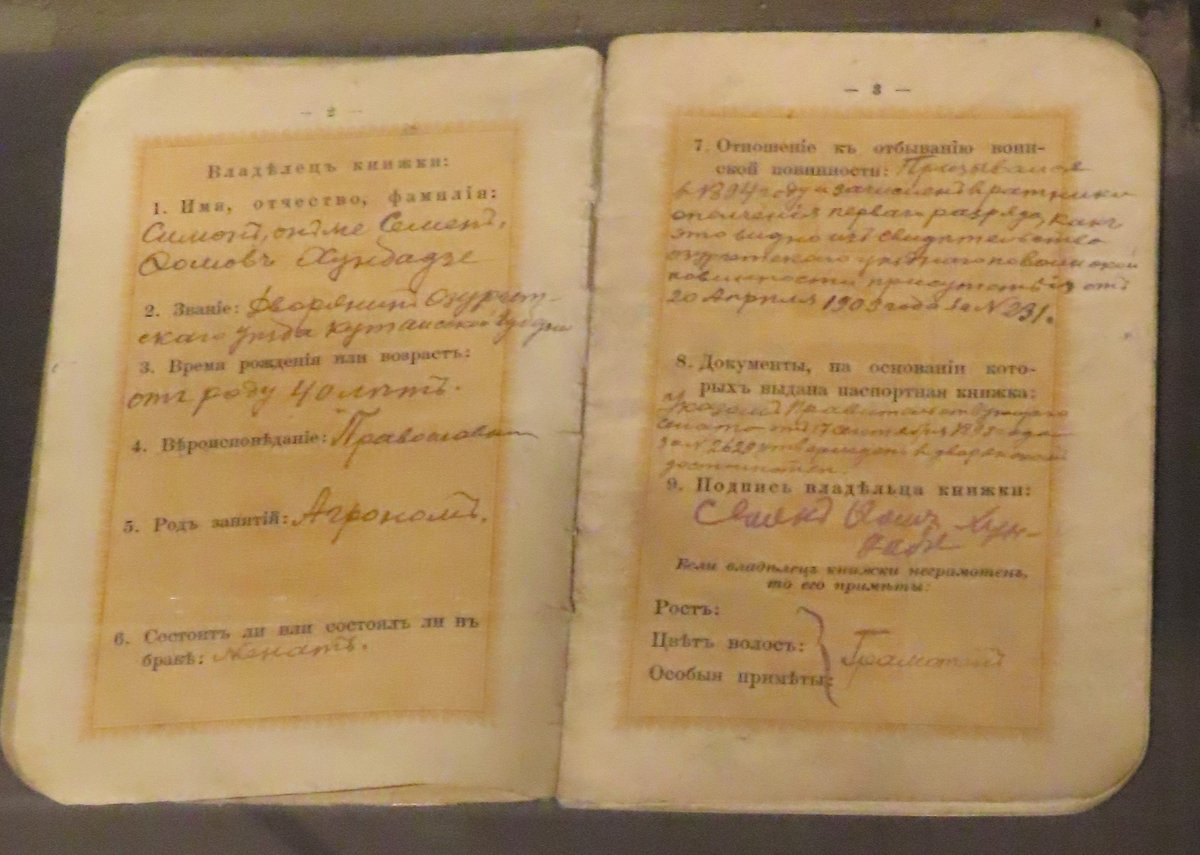 — 2 —
Владѣлецъ книжки:
1. Имя, отчество, фамилія:
Симонъ, онъ же Семенъ,
Хундадзе
2. Званіе: Дворянинъ Озургет-
скаго уѣзда Кутаисской губерніи
3. Время рожденія или возрастъ:
отъ роду 40 лѣтъ.
4. Вѣроисповѣданіе: Православный
5. Родъ занятій: Агрономъ.
6. Состоитъ ли или состоялъ ли въ
бракѣ: Женатъ.
— 3 —
7. Отношеніе къ отбыванію воин-
ской повинности: Призывался
въ году и зачисленъ въ ратники
ополченія перваго разряда, какъ
это видно изъ свидѣтельства
Озургетскаго уѣзднаго по воинской
повинности присутствія отъ
20 Апрѣля 1903 года за № 231.
8. Документы, на основаніи кото-
рыхъ выдана паспортная книжка:
Указомъ Правительствующаго
Сената отъ 17 Сентября года
за № утвержденъ въ дворянскомъ
достоинствѣ.
9. Подпись владѣльца книжки:
Хун-
Если владѣлецъ книжки неграмотенъ,
то его примѣты:
Ростъ:
Цвѣтъ волосъ:
Грамотный
Особыя примѣты: